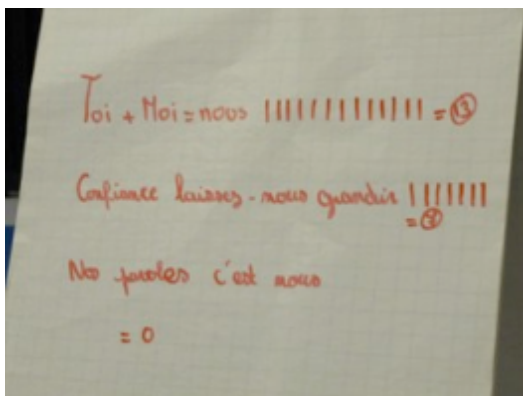 Toi + Moi = nous ||||||||||||| = 13
Confiance laisses-nous grandir |||||||
= 7
Nos paroles c'est nous
= 0